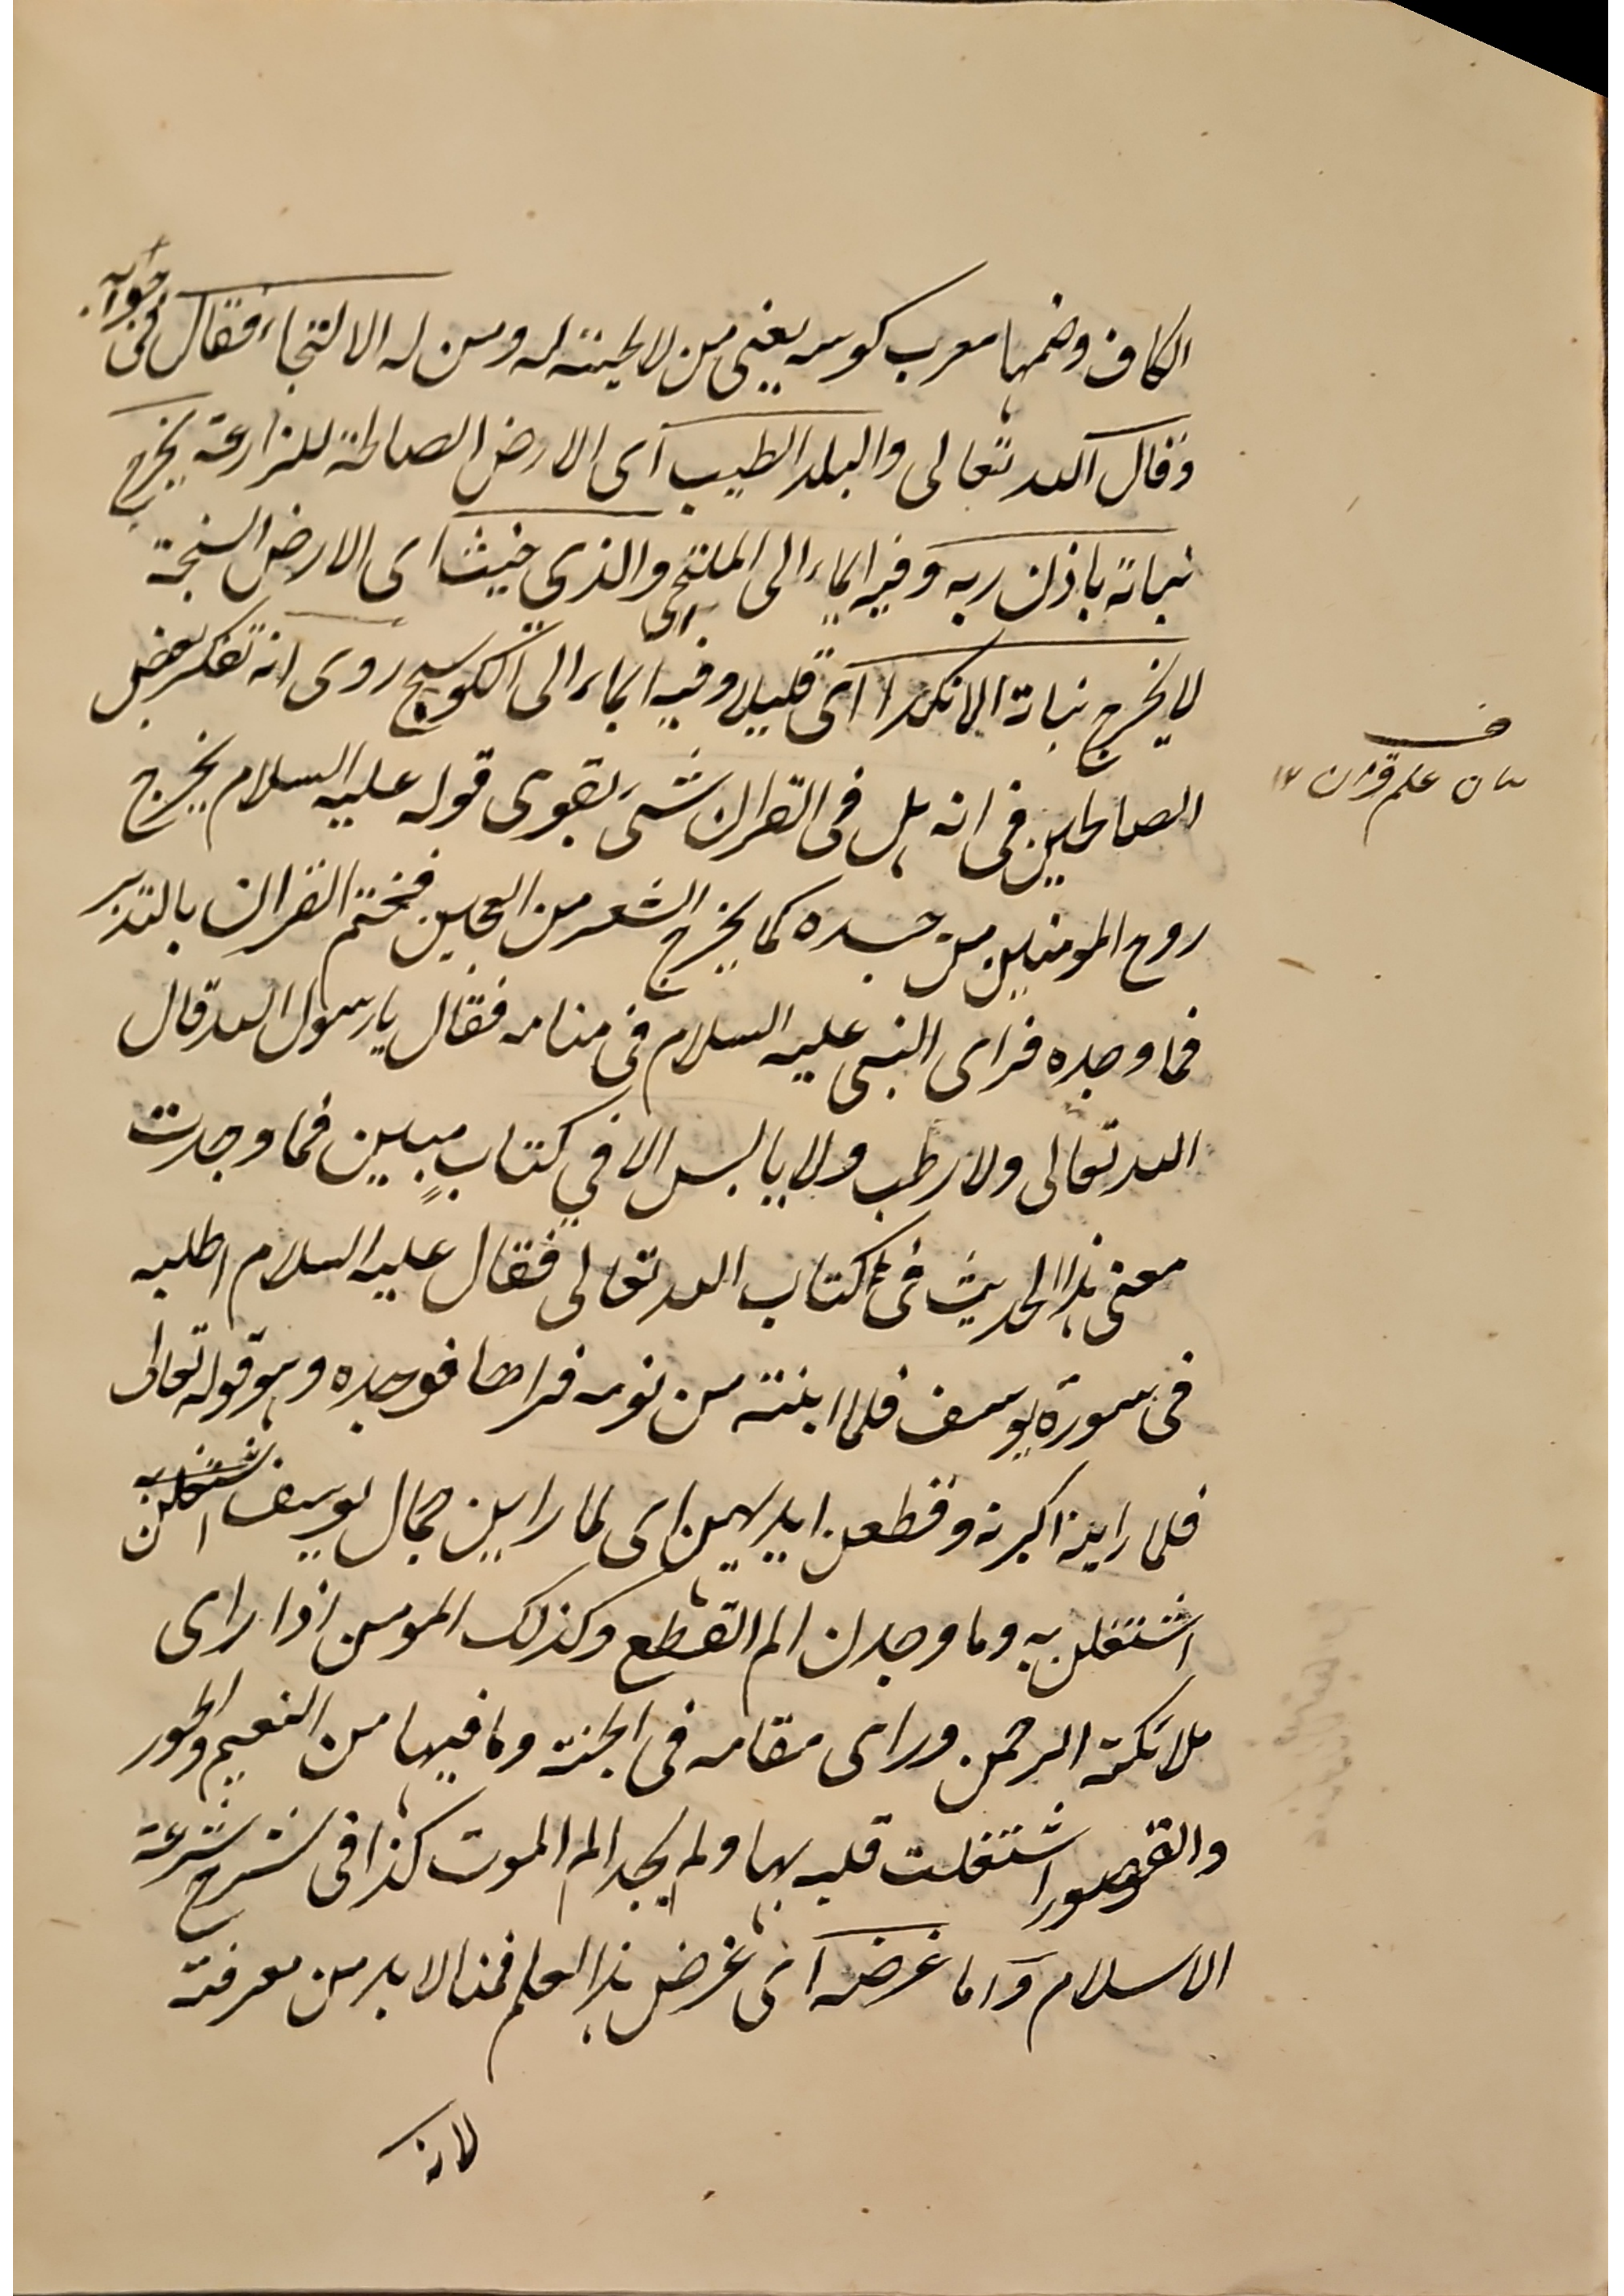 الكاف وضمها معرب كوسه يعنى من لا لحيته له ومن له الالتجاء فقال فى جوابه
وقال الله تعالى والبلد الطيب اى الارض الصالحة للزارعة يخرج
نباته باذن ربه وفيه ايماء الى الملتحى والذي خبث اى الارض السبخة
لا يخرج نباته الا نكدا اى قليلا وفيه ايماء الى الكوسج روى انه تفكر بعض
الصالحين فى انه هل فى القران شىء يقوى قوله عليه السلام يخرج
روح المومنين من جسده كما يخرج الشعر من العجين فختم القران بالتدبر
فما وجده فراى النبى عليه السلام فى منامه فقال يا رسول الله قال
الله تعالى ولا رطب ولا يابس الا في كتاب مبين فما وجدت
معنى هذا الحديث فى كتاب الله تعالى فقال عليه السلام اطلبه
فى سورة يوسف فلما ابنته من نومه فراها فوجده وهو قوله تعالى
فلما راينه اكبرنه وقطعن ايديهن اى لما راين جمال يوسف اشتغلن به
اشتغلن به وما وجدن الم القطع وكذلك المومن اذا راى
ملائكة الرحمن وراى مقامه فى الجنة وما فيها من النعيم والحور
والقصور اشتغلت قلبه بها ولم يجد الم الموت كذا فى شرح شرعة
الاسلام واما غرضه اى غرض هذا العلم فمنا لابد من معرفته
لانه
ف
بيان علم قران ١٢